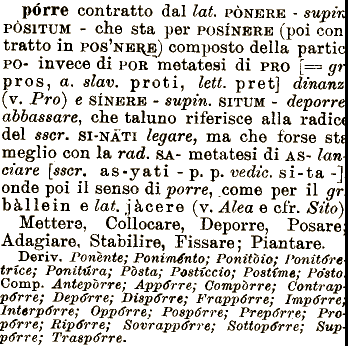 pórre contratto dal lat. PÒNERE - supin
PÒSITUM - che sta per POSÍNERE (poi con
tratto in POS'NERE) composto della partic
PO- invece di POR metatesi di PRO [= gr
pros, a. slav. proti, lett. pret] dinanz
(v. Pro) e SÍNERE - supin. SITUM - deporre
abbassare, che taluno riferisce alla radice
del sscr. SI-NÂTI legare, ma che forse sta
meglio con la rad. SA- metatesi di AS- lan-
ciare [sscr. as-yati - p. p. vedic. si-ta -]
onde poi il senso di porre, come per il gr
bàllein e lat. jàcere (v. Alea e cfr. Sito)
Mettere, Collocare, Deporre, Posare
Adagiare, Stabilire, Fissare; Piantare.
Deriv. Ponènte; Poniménto; Ponitòio; Ponitóre-
tríce; Ponitúra; Pòsta; Posticcio; Postíme; Pósto
Comp. Antepòrre; Appórre; Compòrre; Contrap-
pórre; Depórre; Dispórre; Frappórre; Impórre;
Interpórre; Oppórre; Pospórre; Prepórre; Pro-
pórre; Ripórre; Sovrappórre; Sottopórre; Sup-
pórre; Traspórre.